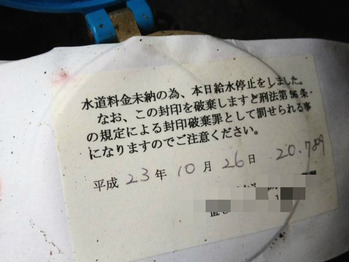 水道料金未納の為、本日給水停止をしました。
なお、この封印を破棄しますと刑法第96条
の規定による封印破棄罪として罰せられる事
になりますのでご注意ください。
平成 23 年 10 月 26 日 20.789